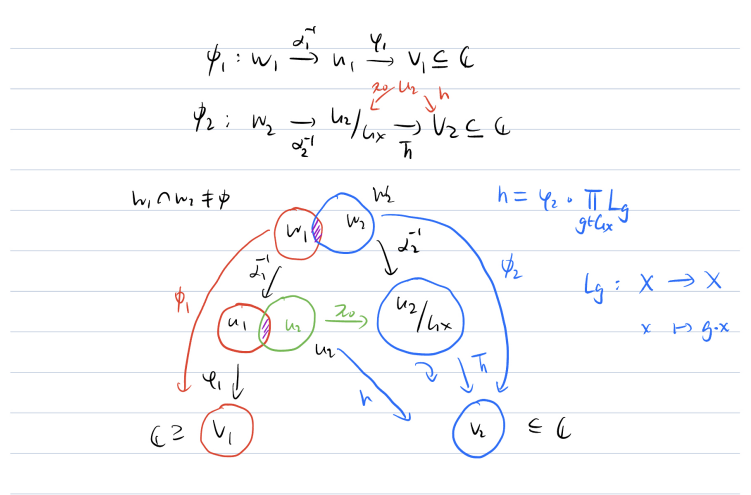 ϕ₁ : W₁ →^{α₁⁻¹} U₁ →^{φ₁} V₁ ⊆ ℂ
π₀ U₂ h
ϕ₂ : W₂ →_{α₂⁻¹} U₂/Gₓ →_{h̄} V₂ ⊆ ℂ
W₁ ∩ W₂ ≠ ϕ
W₂
h = φ₂ ∘ ∏_{g∈Gₓ} L_g
W₁ W₂
α₁⁻¹ α₂⁻¹ ϕ₂
L_g : X → X
ϕ₁
U₁ U₂ π₀ U₂/Gₓ
x ↦ g·x
U₂
φ₁ h h̄
ℂ ⊇ V₁ V₂ ⊆ ℂ